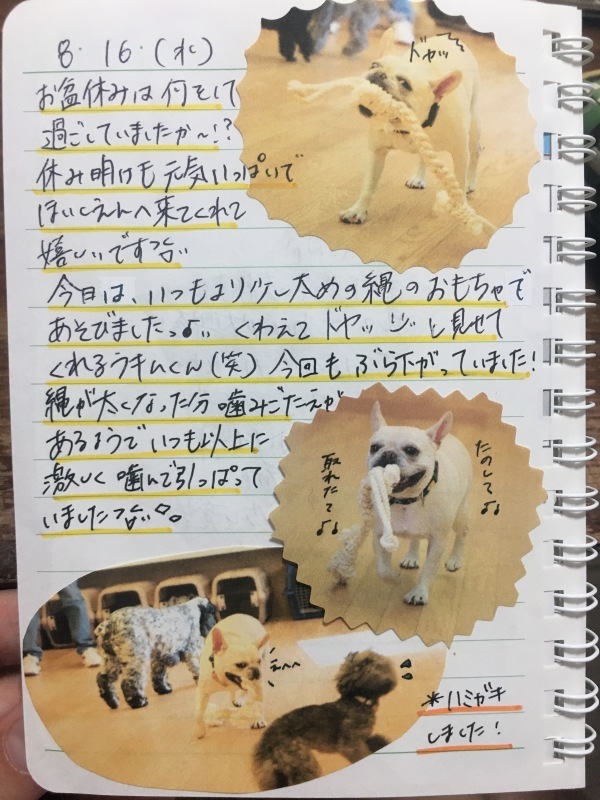 8.16.(水)
お盆休みは何をして
過ごしていましたか〜!?
休み明けも元気いっぱいで
ほいくえんへ来てくれて
嬉しいです
今日は、いつもより少し太めの縄のおもちゃで
あそびました♪ くわえて ドヤッ と見せて
くれるうキムくん(笑) 今回もぶら下がっていました!
縄が太くなった分 噛みごたえが
あるようでいつも以上に
激しく噛んで引っぱって
いました
ドヤッ
たのして♪♪
取れたて♪♪
えへへ
*ハミガキ
しました!